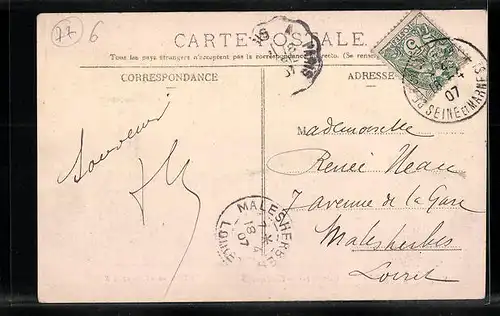 77 6
CARTE POSTALE
Tous les pays étrangers n'acceptent pas la correspondance au recto. (Se rense
CORRESPONDANCE
ADRESSE
PARIS
5
07
SEINE ET MARNE
Souvenir
Mademoiselle
Renée Neau
7 avenue de la Gare
Malesherbes
Loiret
MALESHERBES
7
18 4
07
LOIRET